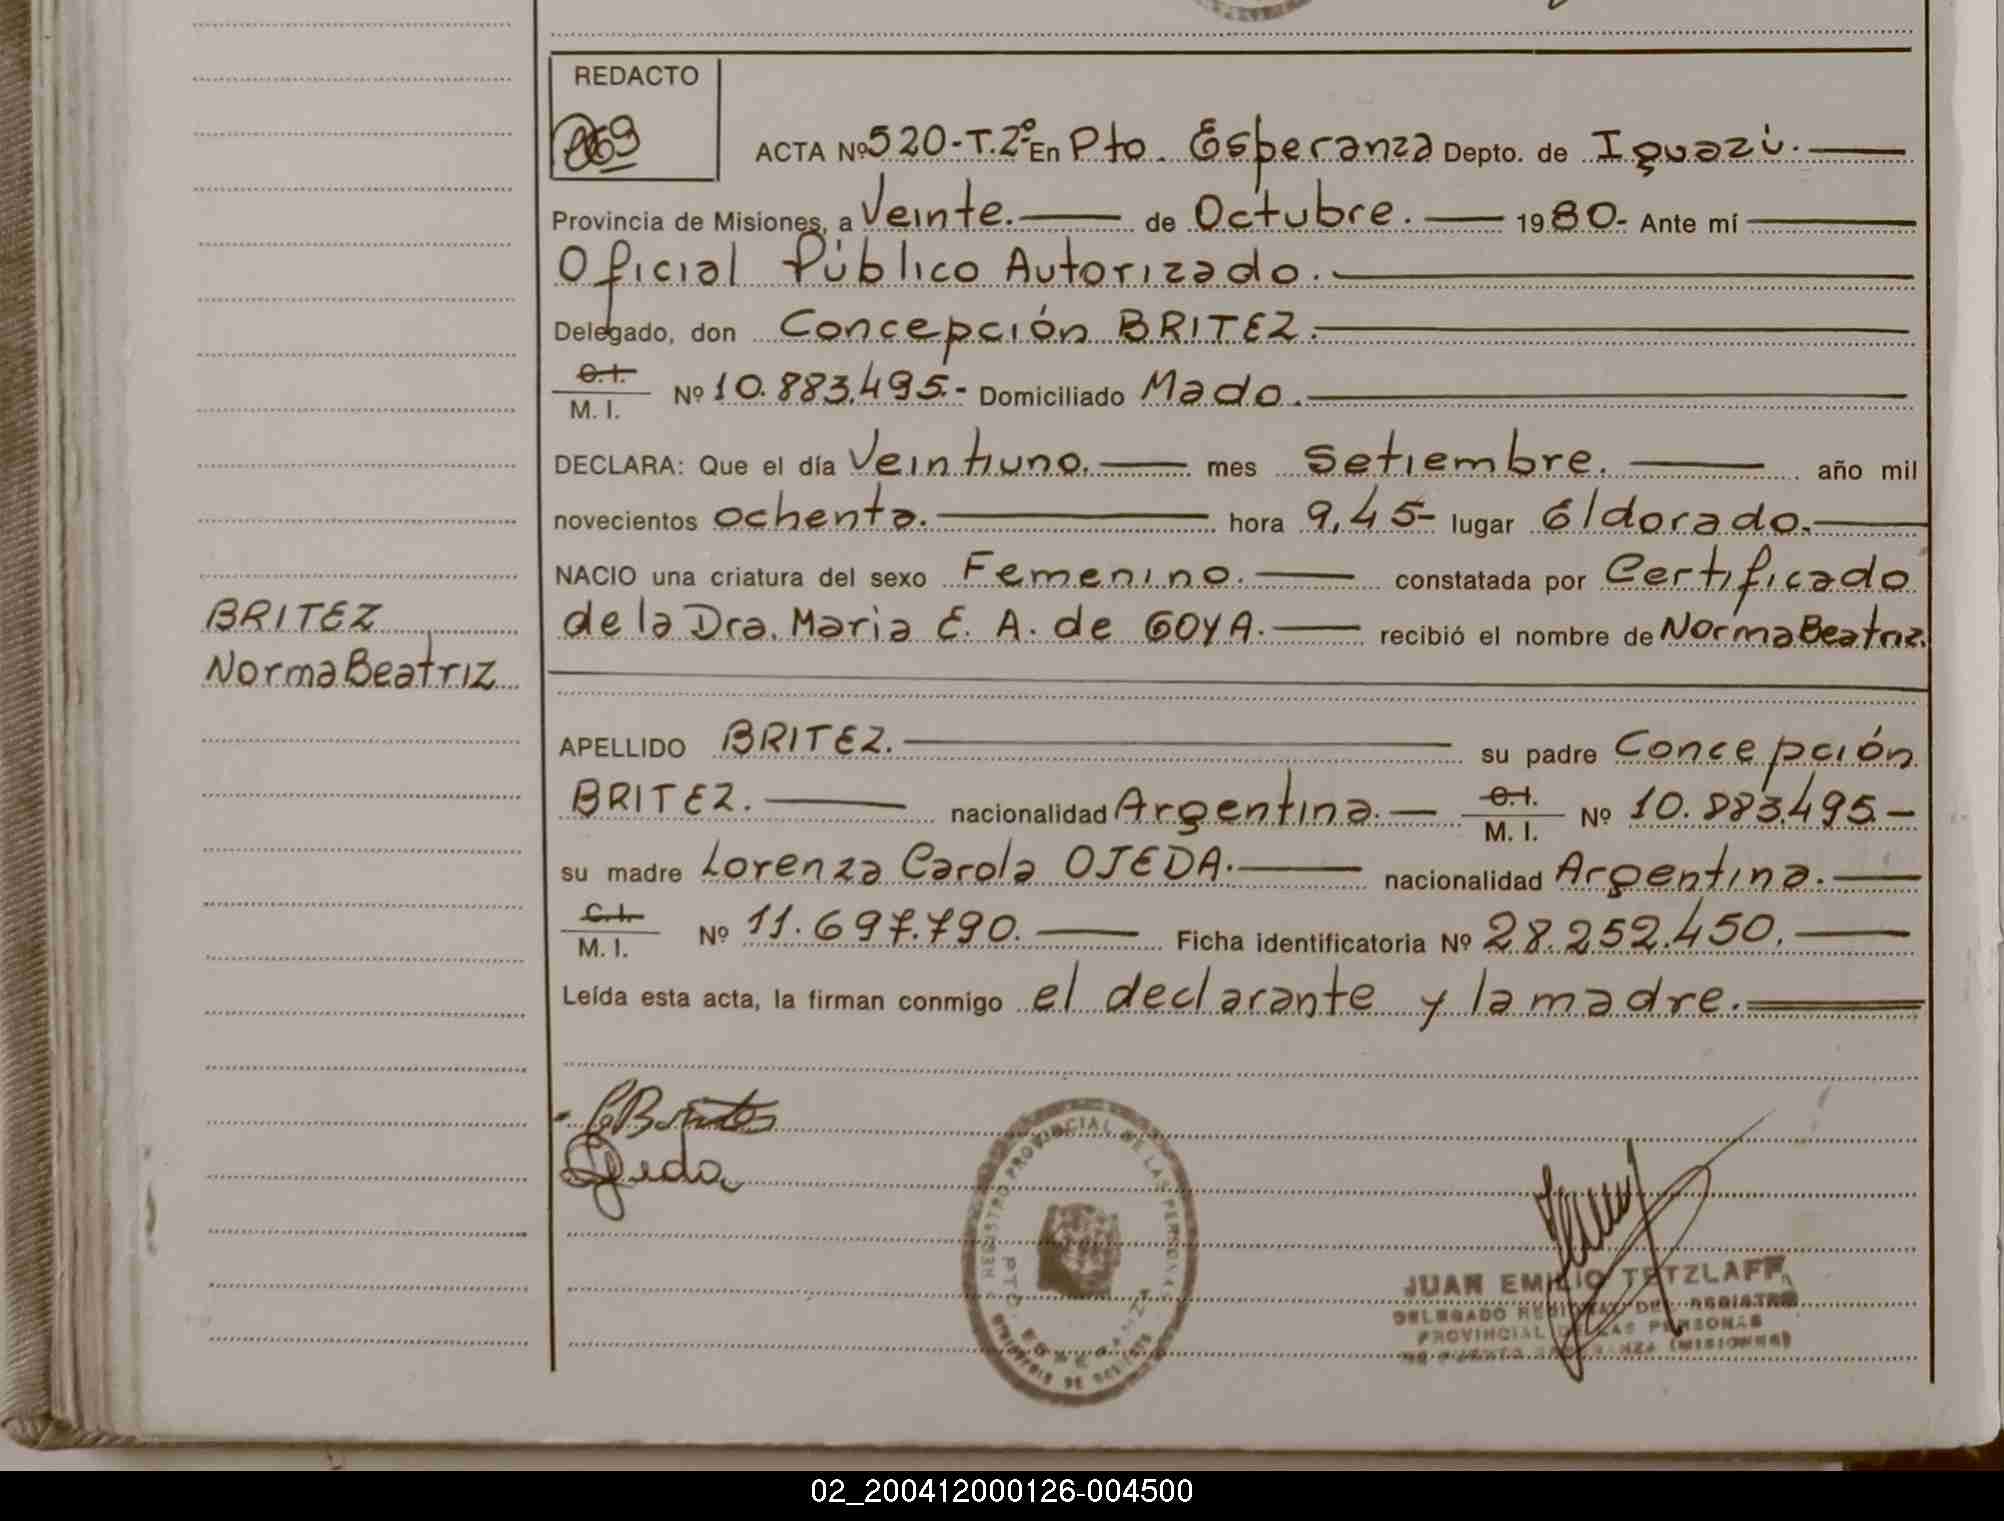 REDACTO
ACTA Nº 520-T.2º- En Pto. Esperanza Depto. de Iguazú.
Provincia de Misiones, a Veinte. de Octubre. 1980.- Ante mí
Oficial Público Autorizado.
Delegado, don Concepción BRITEZ.
C.I.
M. I. Nº 10.883.495.- Domiciliado Mado.
DECLARA: Que el día Veintiuno. mes Setiembre. año mil
novecientos ochenta. hora 9,45- lugar Eldorado.
NACIO una criatura del sexo Femenino. constatada por Certificado
de la Dra. Maria E. A. de GOYA. recibió el nombre de Norma Beatriz.
BRITEZ
Norma Beatriz
APELLIDO BRITEZ. su padre Concepción
BRITEZ. nacionalidad Argentina. C.I.
M. I. Nº 10.883.495.-
su madre Lorenza Carola OJEDA. nacionalidad Argentina.
C.I.
M. I. Nº 11.697.790. Ficha identificatoria Nº 28.252.450.
Leída esta acta, la firman conmigo el declarante y la madre.
Ojeda
REGISTRO PROVINCIAL DE LAS PERSONAS
PTO. ESPERANZA
JUAN EMILIO TETZLAFF
DELEGADO REGIONAL DEL REGISTRO
PROVINCIAL DE LAS PERSONAS
DE PUERTO ESPERANZA (MISIONES)
02_200412000126-004500